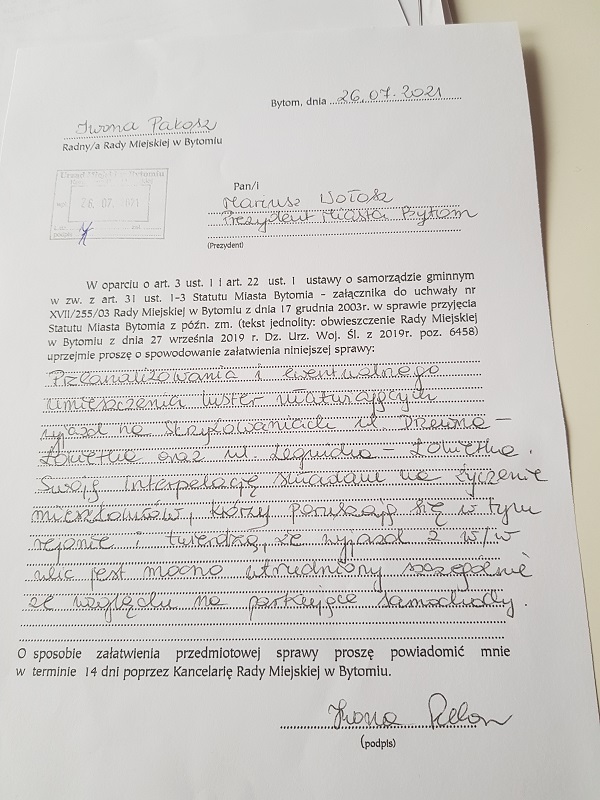 Bytom, dnia 26.07.2021
Iwona Pakosz
Radny/a Rady Miejskiej w Bytomiu
Urząd Miejski w Bytomiu
26. 07. 2021
Pan/i
Mariusz Wołosz
Prezydent Miasta Bytom
(Prezydent)
W oparciu o art. 3 ust. 1 i art. 22 ust. 1 ustawy o samorządzie gminnym
w zw. z art. 31 ust. 1-3 Statutu Miasta Bytomia - załącznika do uchwały nr
XVII/255/03 Rady Miejskiej w Bytomiu z dnia 17 grudnia 2003r. w sprawie przyjęcia
Statutu Miasta Bytomia z późn. zm. (tekst jednolity: obwieszczenie Rady Miejskiej
w Bytomiu z dnia 27 września 2019 r. Dz. Urz. Woj. Śl. z 2019r. poz. 6458)
uprzejmie proszę o spowodowanie załatwienia niniejszej sprawy:
Przeanalizowania i ewentualnego
umieszczenia luster ułatwiających
wyjazd na skrzyżowaniach ul. Drzewna -
Łowiecka oraz ul. Legnicka - Łowiecka.
Swoją Interpelację składam na życzenie
mieszkańców, którzy poruszają się w tym
rejonie i twierdzą, że wyjazd z w/w
ulic jest mocno utrudniony szczególnie
ze względu na parkujące samochody.
O sposobie załatwienia przedmiotowej sprawy proszę powiadomić mnie
w terminie 14 dni poprzez Kancelarię Rady Miejskiej w Bytomiu.
Iwona
(podpis)